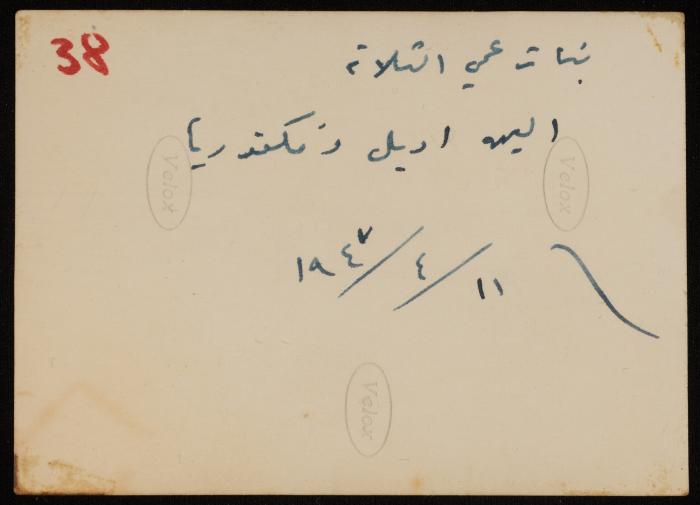 38
بنات عمي الثلاثة
اليس اديل و
Velox
Velox
١١/٤/١٩٤٧
Velox